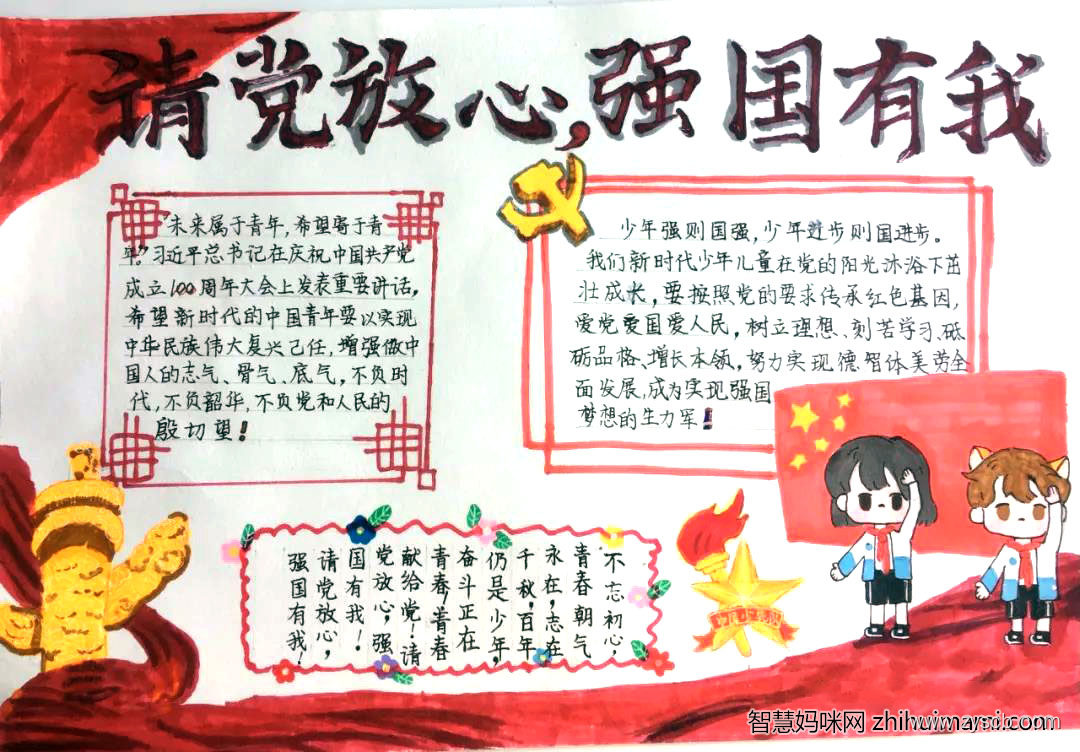 请党放心,强国有我
未来属于青年,希望寄于青
年。"习近平总书记在庆祝中国共产党
成立100周年大会上发表重要讲话,
希望新时代的中国青年要以实现
中华民族伟大复兴己任,增强做中
国人的志气、骨气、底气,不负时
代,不负韶华,不负党和人民的
殷切望!
少年强则国强,少年进步则国进步。
我们新时代少年儿童在党的阳光沐浴下茁
壮成长,要按照党的要求传承红色基因,
爱党爱国爱人民,树立理想、刻苦学习、砥
砺品格、增长本领,努力实现德智体美劳全
面发展,成为实现强国
梦想的生力军!
不忘初心,
青春朝气
永在,志在
千秋,百年
仍是少年,
奋斗正在
青春,青春
献给党!请
党放心,强
国有我!
请党放心,
强国有我!
智慧妈咪网 zhihuimami.com